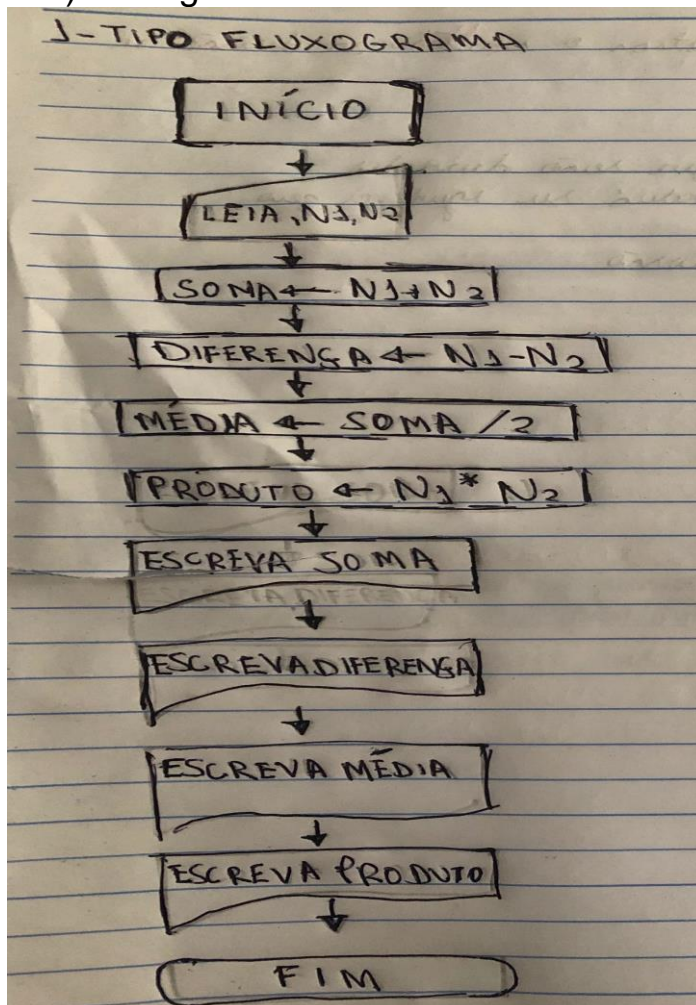 1-TIPO FLUXOGRAMA
INÍCIO
LEIA, N1, N2
SOMA ← N1+N2
DIFERENÇA ← N1-N2
MÉDIA ← SOMA /2
PRODUTO ← N1 * N2
ESCREVA SOMA
ESCREVA DIFERENÇA
ESCREVA MÉDIA
ESCREVA PRODUTO
FIM